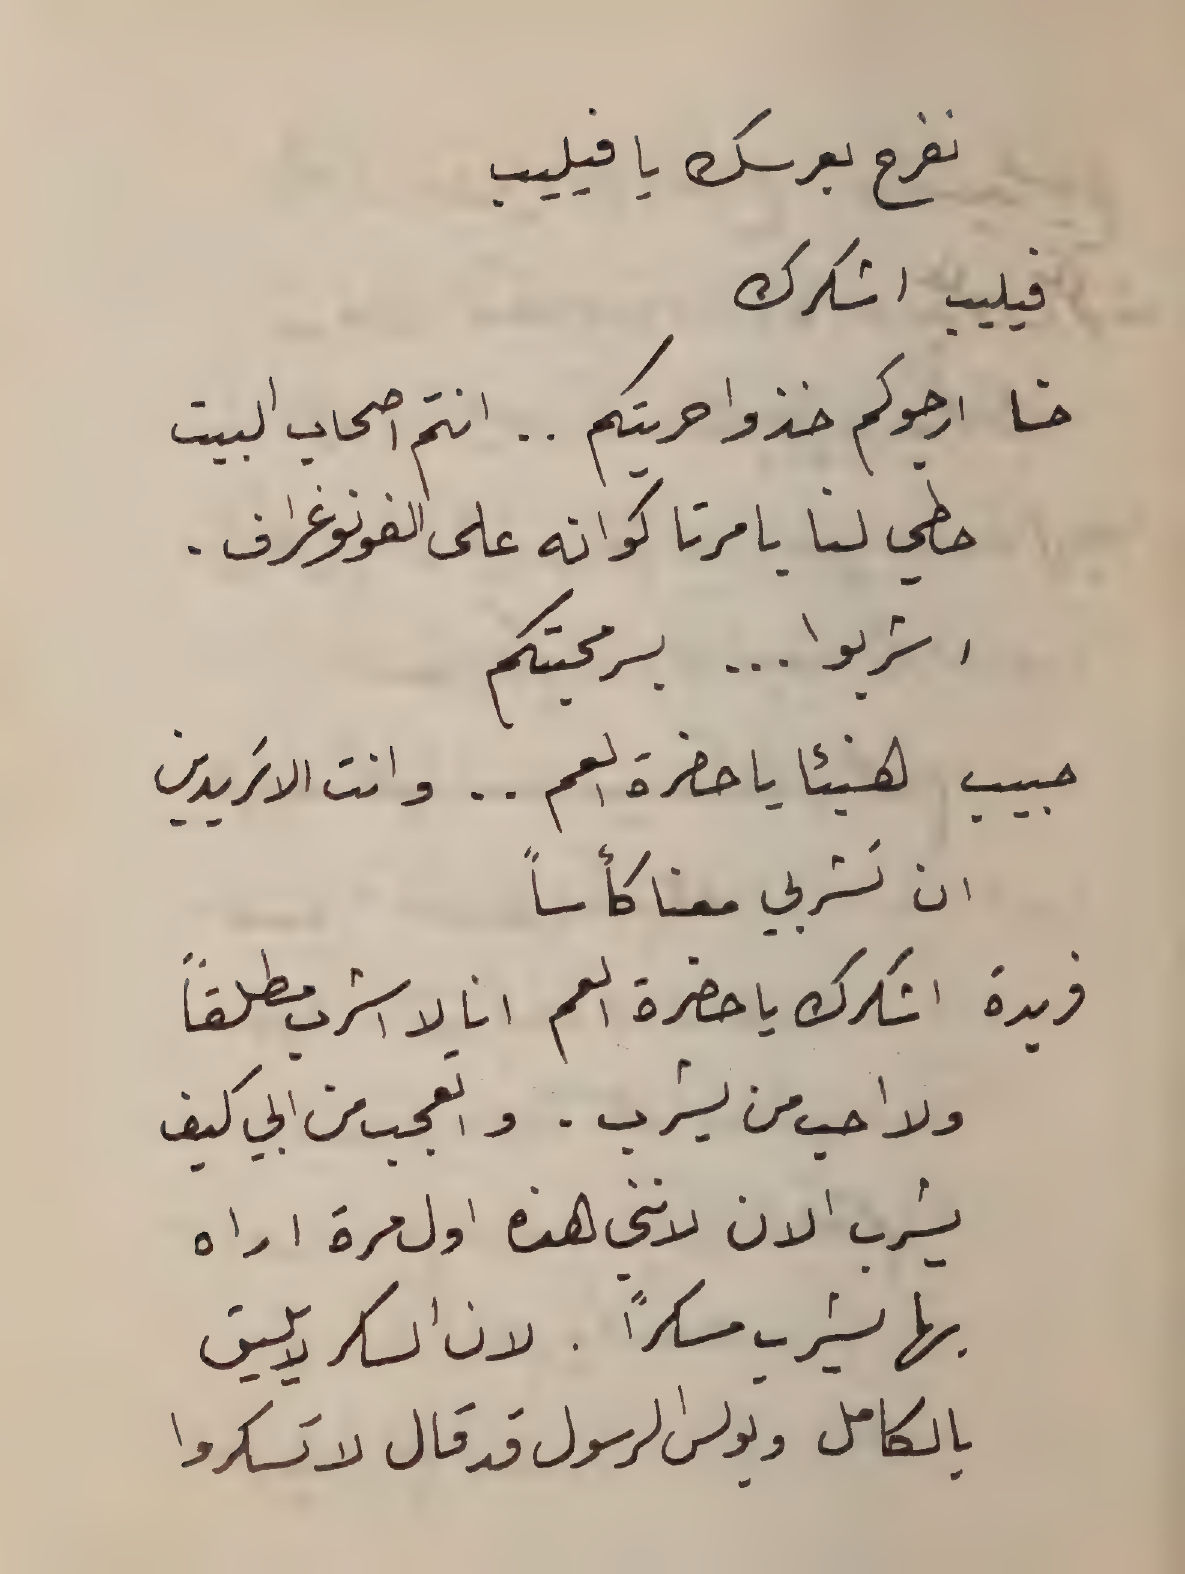 نفرح بعرسك يا فيليب
فيليب اشكرك
حنا ارجوكم خذوا حريتكم .. انتم اصحاب البيت
حطي لنا يا مرتا كوانه على الفونوغراف .
اشربوا ... بسر محبتكم
حبيب هنيئا يا حضرة العم .. وانت الا تريدين
ان تشربي معنا كأساً
فريدة اشكرك يا حضرة العم انا لا اشرب مطلقاً
ولا احب من يشرب . و العجب من ابي كيف
يشرب الان لانني هذه اول مرة اراه
بها يشرب مسكراً . لان السكر لا يليق
بالكامل وبولس الرسول قد قال لا تسكروا